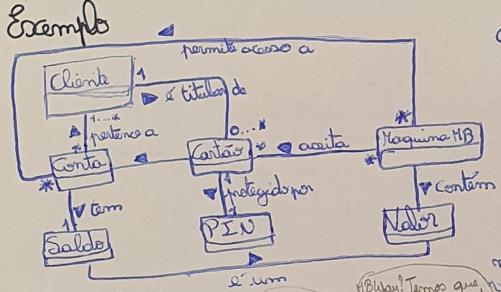 Exemplo
permite acesso a
Cliente
1
é titular de
1...*
pertence a
0...*
*
Conta
Cartão
*
aceita
*
Maquina MB
*
tem
1
protegido por
1
contém
1
Saldo
PIN
Valor
é um
MBWay? Temos que